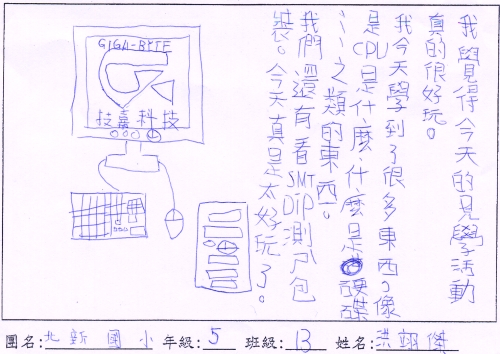 我覺得今天的見學活動
真的很好玩。
我今天學到了很多東西,像
是CPU是什麼、什麼是硬碟
……之類的東西。
我們還有看SMT DIP測ㄕ包
裝。今天真是太好玩了。
GIGA-BYTE
技嘉科技
團名:北新國小 年級:5 班級:13 姓名:洪翊傑